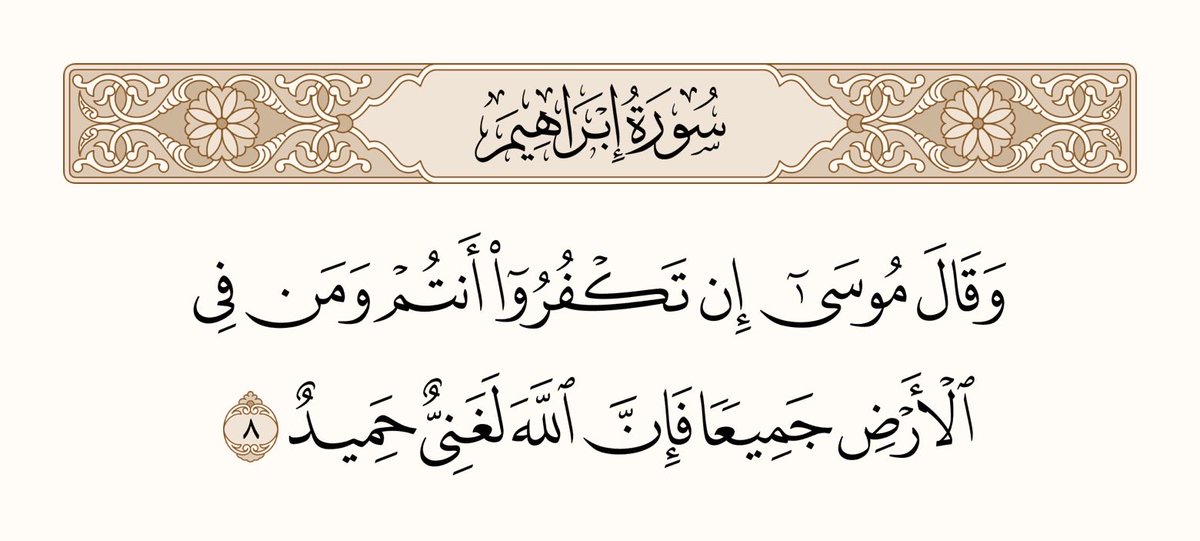 سُورَةُ إِبۡرَاهِيمَ
وَقَالَ مُوسَىٰٓ إِن تَكۡفُرُوٓاْ أَنتُمۡ وَمَن فِي
ٱلۡأَرۡضِ جَمِيعٗا فَإِنَّ ٱللَّهَ لَغَنِيٌّ حَمِيدٌ ٨